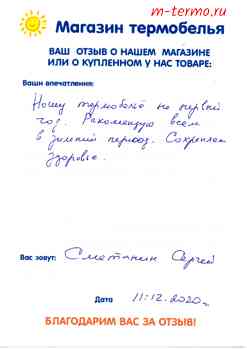 m-termo.ru
Магазин термобелья
ВАШ ОТЗЫВ О НАШЕМ МАГАЗИНЕ
ИЛИ О КУПЛЕННОМ У НАС ТОВАРЕ:
Ваши впечатления:
Ношу термобельё не первый
год. Рекомендую всем
в зимний период. Сохраняет
здоровье.
Вас зовут: Сметанин Сергей
Дата 11.12.2020г
БЛАГОДАРИМ ВАС ЗА ОТЗЫВ!